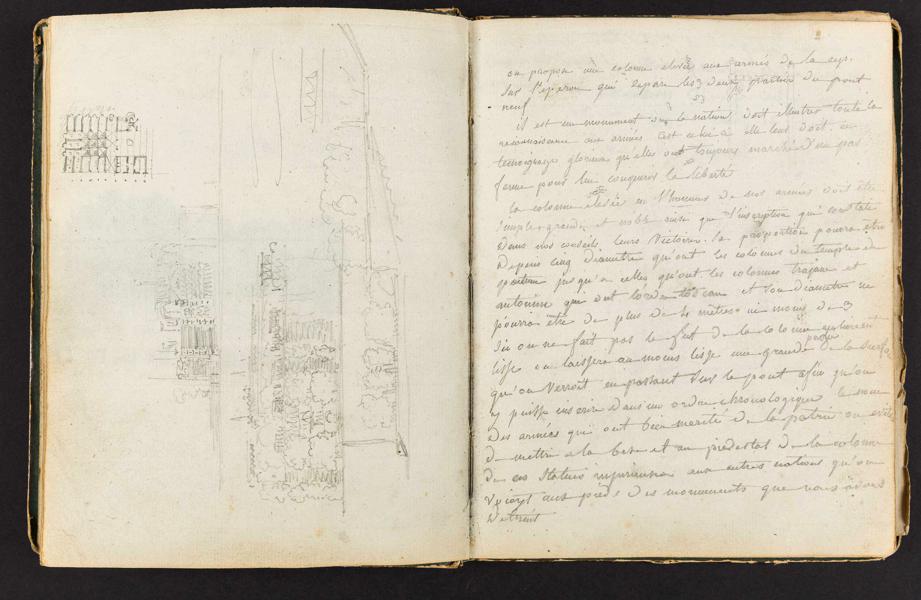 2
on propose une colonne elevée aux armées de la rep.
sur l'eperon qui separe les 2 parties du pont
neuf
il est un monument où la nation doit illustrer toute la
reconnaissance aux armées c'est celui-ci elle leur doit ce
temoignage glorieux qu'elles ont toujours marché d'un pas
ferme pour lui conquerir la liberté
la colonne elevée en l'honneur de nos armées doit être
simple grande et noble ainsi que l'inscription qui constate
dans nos conseils leurs victoires. la proportion pourra être
depuis cinq diametres qu'ont les colonnes du temple de
poestum jusqu'a celles qu'ont les colonnes trajane et
antonine qui ont l'ordre toscan et son diametre ne
pourra être de plus de 4 metres ni moins de 3
si on ne fait pas le fut de la colonne entierement
lisse on laissera au moins lisse une grande partie de la surface
qu'on verroit en passant sur le pont afin qu'on
y puisse inscrire dans un ordre chronologique le nom
des armées qui ont bien merité de la patrie on evite
de mettre a la base et au piedestal de la colonne
de ces statues injurieuses aux autres nations qu'on
voioyt aux pieds des monuments que nous avons
detruit